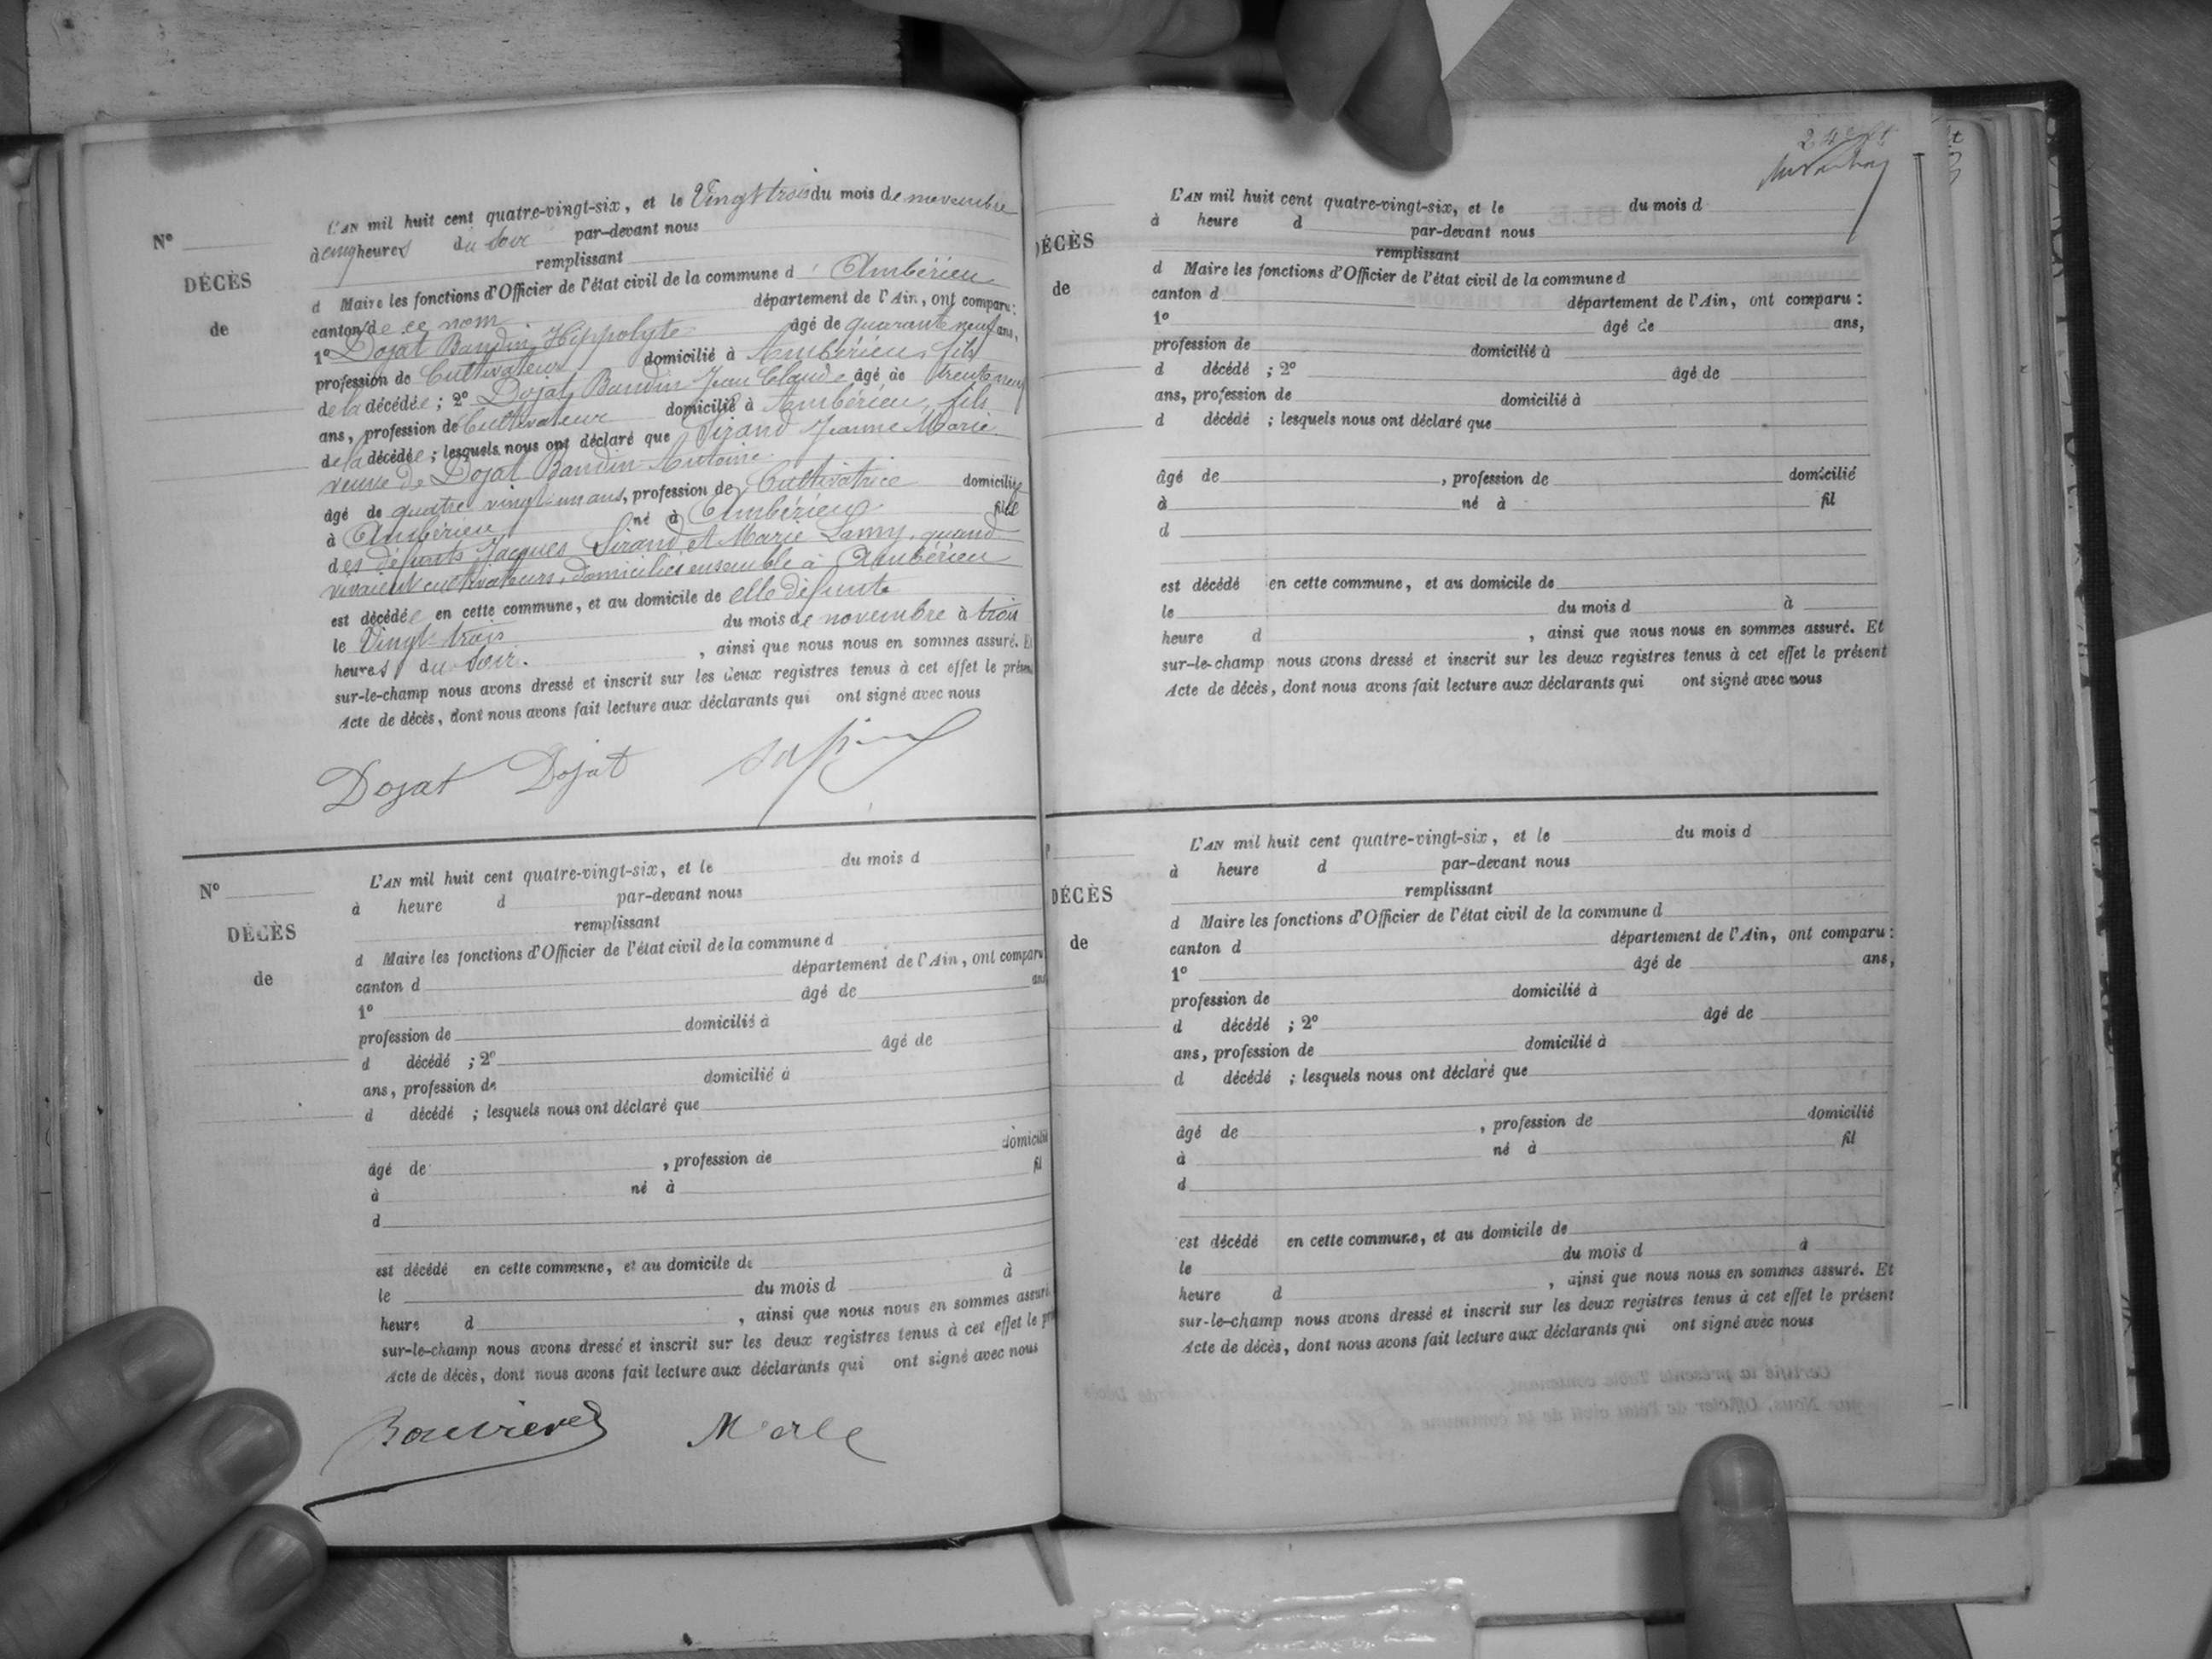 N°
DÉCÈS
de
L'AN mil huit cent quatre-vingt-six, et le Vingt trois du mois de novembre
à cinq heures du soir par-devant nous
remplissant
d Maire les fonctions d'Officier de l'état civil de la commune d'Ambérieu
canton de ce nom département de l'Ain, ont comparu :
1° Dojat Baudin Hippolyte âgé de quarante neuf ans,
profession de Cultivateur domicilié à Ambérieu, fils
de la décédée ; 2° Dojat Baudin Jean Claude âgé de trente neuf
ans, profession de Cultivateur domicilié à Ambérieu, fils
de la décédée ; lesquels nous ont déclaré que Sirand Jeanne Marie
veuve de Dojat Baudin Antoine
âgé de quatre vingt un ans, profession de Cultivatrice domiciliée
à Ambérieu né à Ambérieu fille
des défunts Jacques Sirand et Marie Lamy, quand
vivaient cultivateurs, domiciliés ensemble à Ambérieu
est décédée en cette commune, et au domicile de elle défunte
le Vingt-trois du mois de novembre à trois
heures du soir. , ainsi que nous nous en sommes assuré. Et
sur-le-champ nous avons dressé et inscrit sur les deux registres tenus à cet effet le présen
Acte de décès, dont nous avons fait lecture aux déclarants qui ont signé avec nous
Dojat Dojat
N°
DÉCÈS
de
L'AN mil huit cent quatre-vingt-six, et le du mois d
à heure d par-devant nous
remplissant
d Maire les fonctions d'Officier de l'état civil de la commune d
canton d département de l'Ain, ont comparu
1° âgé de ans
profession de domicilié à
d décédé ; 2° âgé de
ans, profession de domicilié à
d décédé ; lesquels nous ont déclaré que
âgé de , profession de domicilié
à né à fil
d
est décédé en cette commune, et au domicile de
le du mois d à
heure d , ainsi que nous nous en sommes assuré.
sur-le-champ nous avons dressé et inscrit sur les deux registres tenus à cet effet le pr
Acte de décès, dont nous avons fait lecture aux déclarants qui ont signé avec nous
Bouvier Merle
DÉCÈS
de
L'AN mil huit cent quatre-vingt-six, et le du mois d
à heure d par-devant nous
remplissant
d Maire les fonctions d'Officier de l'état civil de la commune d
canton d département de l'Ain, ont comparu :
1° âgé de ans,
profession de domicilié à
d décédé ; 2° âgé de
ans, profession de domicilié à
d décédé ; lesquels nous ont déclaré que
âgé de , profession de domicilié
à né à fil
d
est décédé en cette commune, et au domicile de
le du mois d à
heure d , ainsi que nous nous en sommes assuré. Et
sur-le-champ nous avons dressé et inscrit sur les deux registres tenus à cet effet le présent
Acte de décès, dont nous avons fait lecture aux déclarants qui ont signé avec nous
DÉCÈS
de
L'AN mil huit cent quatre-vingt-six, et le du mois d
à heure d par-devant nous
remplissant
d Maire les fonctions d'Officier de l'état civil de la commune d
canton d département de l'Ain, ont comparu :
1° âgé de ans,
profession de domicilié à
d décédé ; 2° âgé de
ans, profession de domicilié à
d décédé ; lesquels nous ont déclaré que
âgé de , profession de domicilié
à né à fil
d
est décédé en cette commune, et au domicile de
le du mois d à
heure d , ainsi que nous nous en sommes assuré. Et
sur-le-champ nous avons dressé et inscrit sur les deux registres tenus à cet effet le présent
Acte de décès, dont nous avons fait lecture aux déclarants qui ont signé avec nous